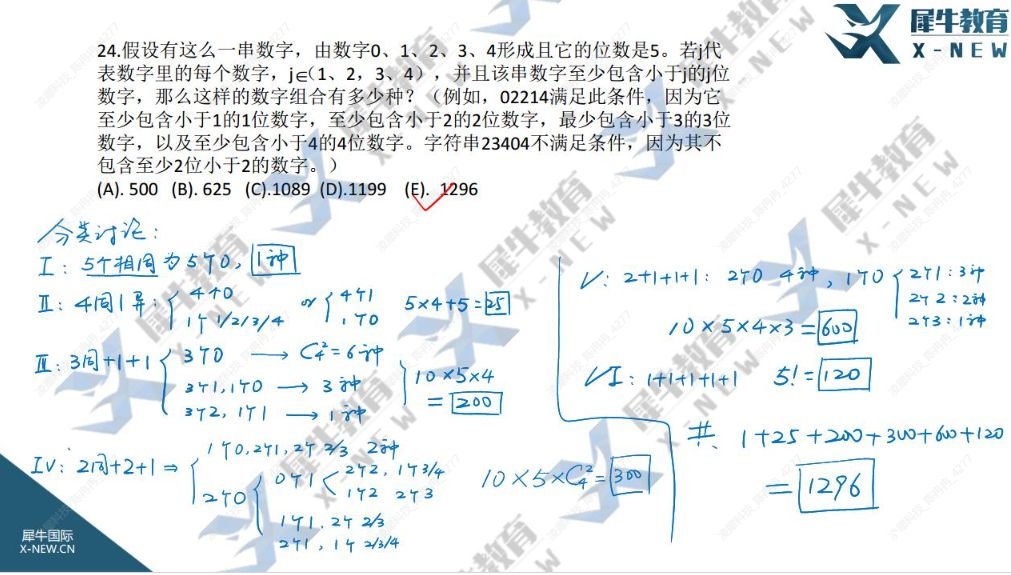 犀牛教育
X-NEW
24.假设有这么一串数字，由数字0、1、2、3、4形成且它的位数是5。若j代
表数字里的每个数字，j∈(1、2，3、4），并且该串数字至少包含小于j的j位
数字，那么这样的数字组合有多少种？（例如，02214满足此条件，因为它
至少包含小于1的1位数字，至少包含小于2的2位数字，最少包含小于3的3位
数字，以及至少包含小于4的4位数字。字符串23404不满足条件，因为其不
包含至少2位小于2的数字。）
(A). 500 (B). 625 (C).1089 (D).1199 (E). 1296
分类讨论：
I：5个相同为5个0，1种
II：4同1异：4个0 or 4个1 5×4+5=25
1个1/2/3/4 1个0
III：3同+1+1 3个0 → C₄²=6种
3个1，1个0 → 3种 10×5×4
3个2，1个1 → 1种 =200
IV：2同+2+1 ⇒ 1个0，2个1，2个2/3 2种
2个0 0个1 2个2，1个3/4 10×5×C₄²=300
1个2 2个3
1个1，2个2/3
2个1，1个2/3/4
V：2+1+1+1：2个0 4种，1个0 2个1：3种
2个2：2种
2个3：1种
10×5×4×3=600
VI：1+1+1+1+1 5!=120
共 1+25+200+300+600+120
=1296
犀牛国际
X-NEW.CN